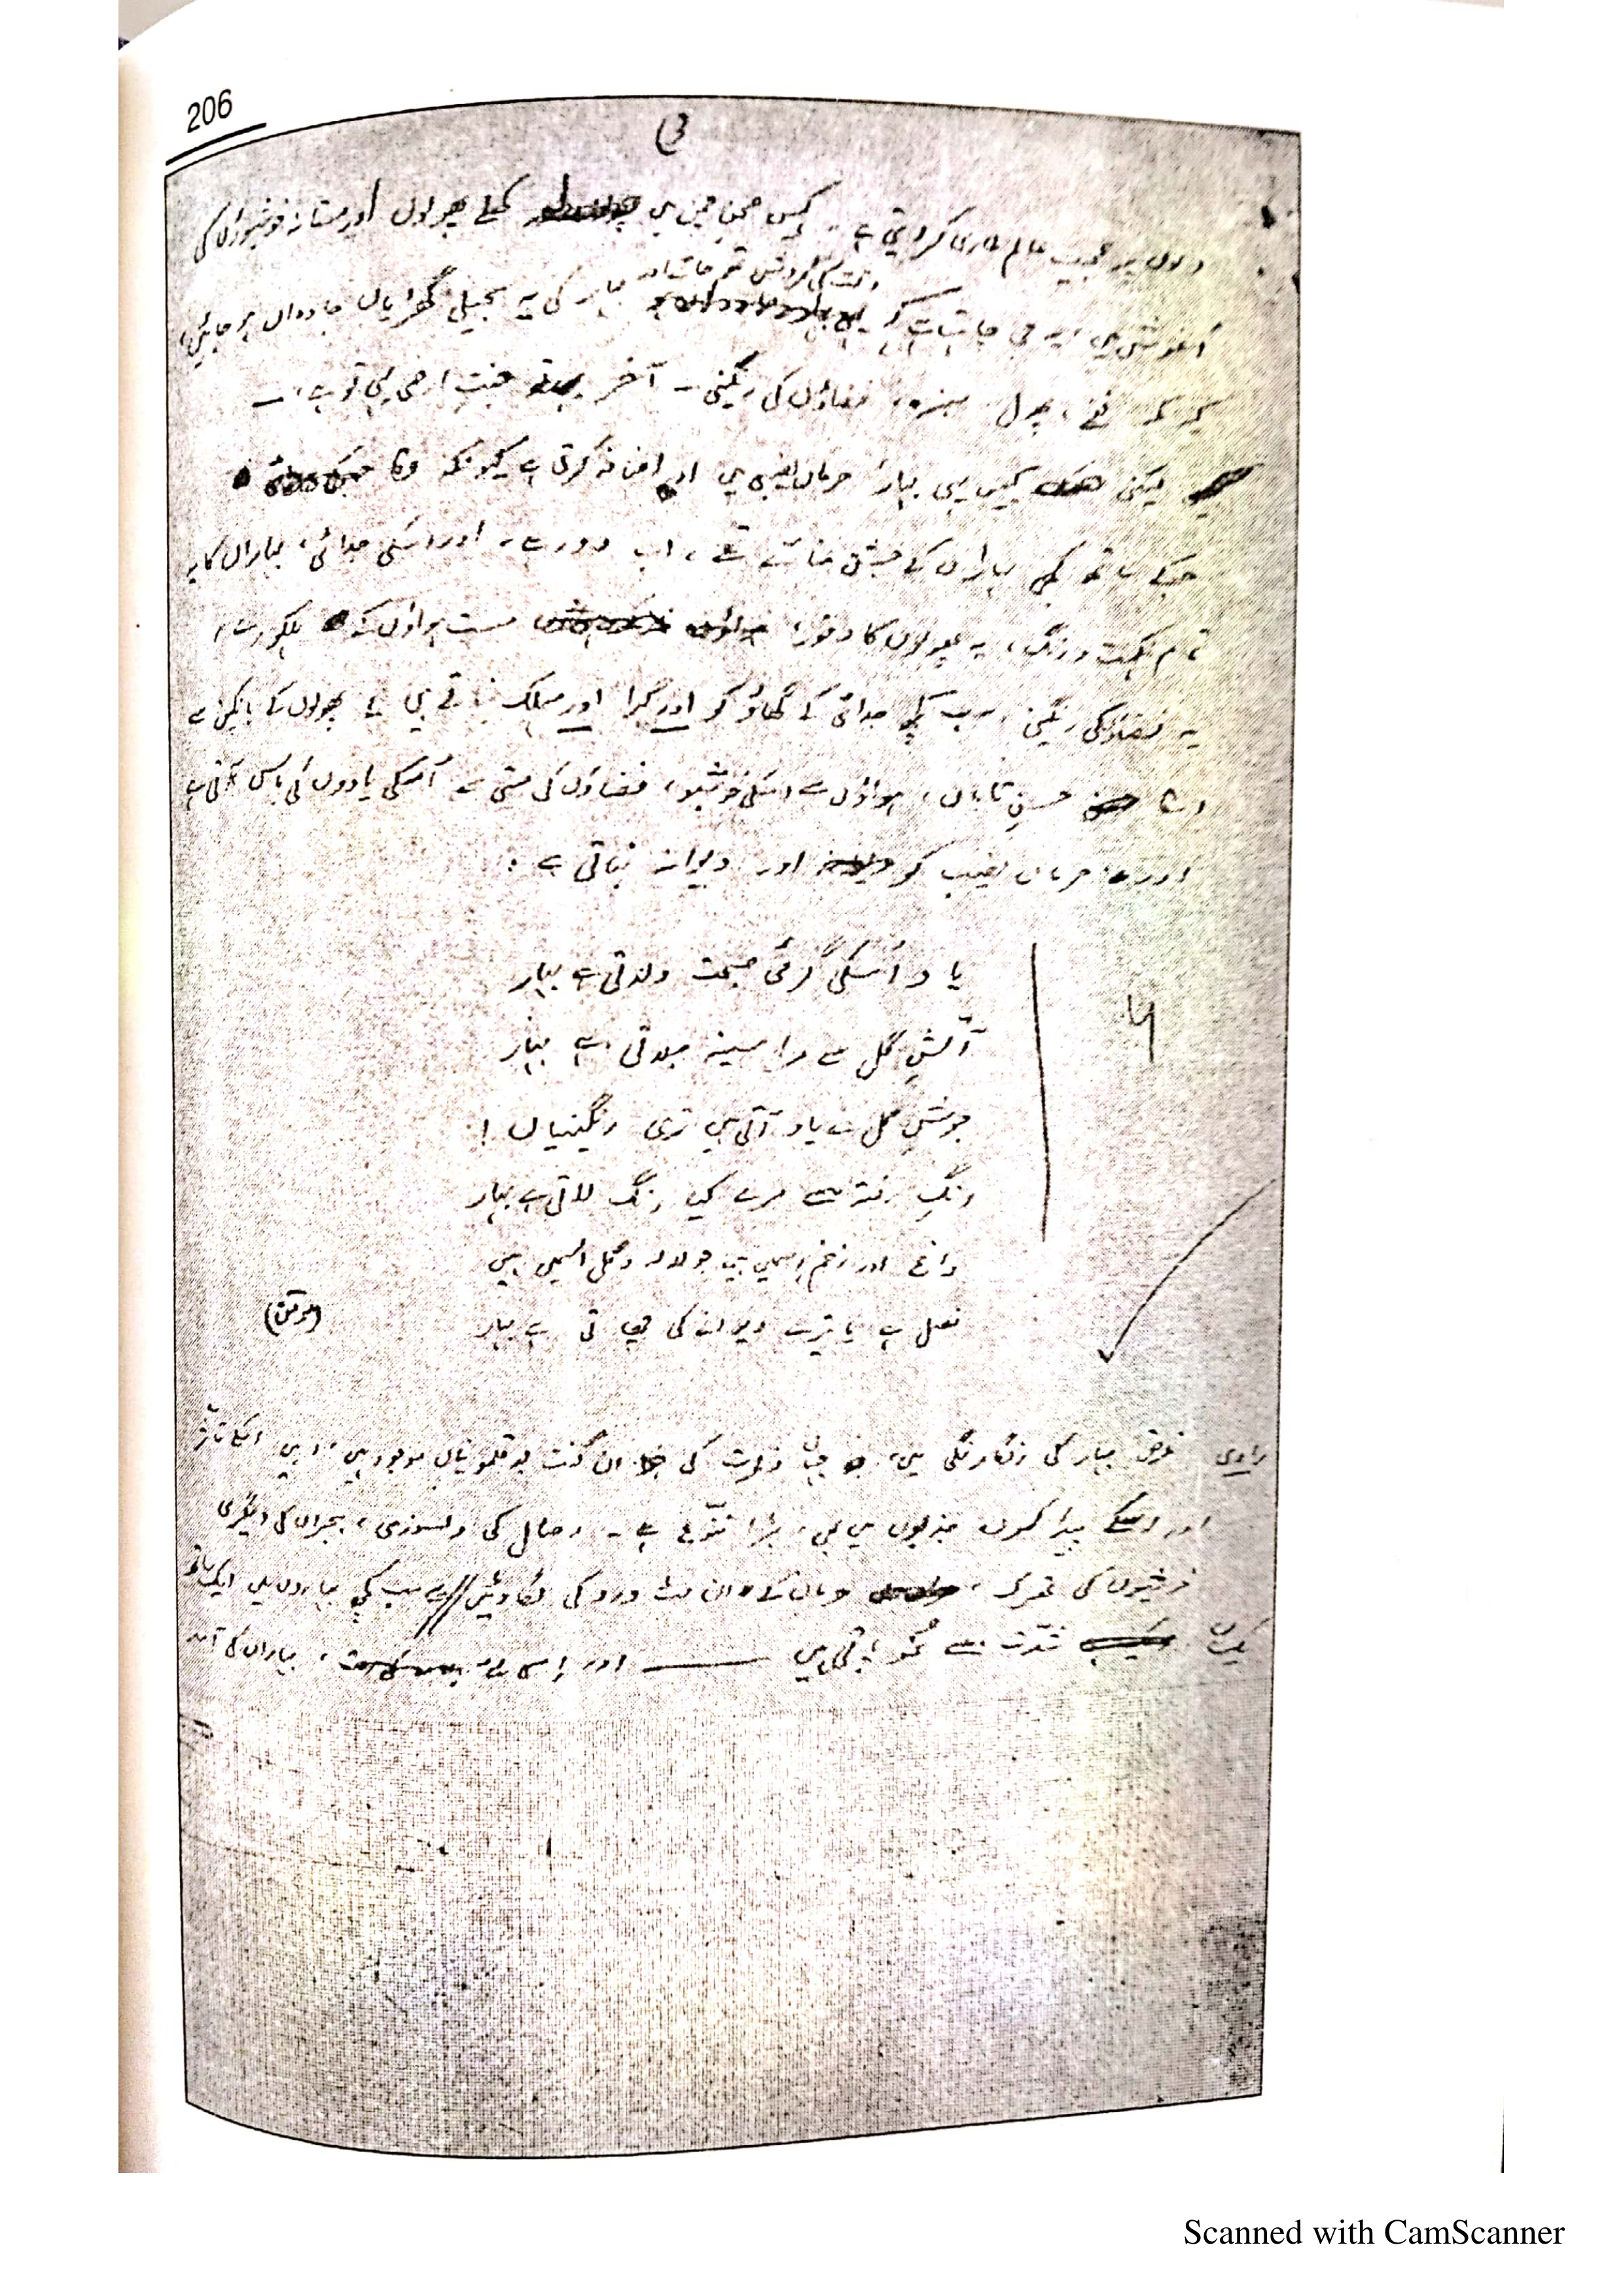 206
دلوں پر عجیب عالم طاری کر دیتی ہے۔ کہیں صحنِ چمن میں کھلے پھولوں اور مستانہ خوشبوؤں کی
وقت کی گردش تھم جائے اور
آغوش میں، یہ جی چاہتا ہے کہ بہار کی یہ سجیلی گھڑیاں جاوداں ہو جائیں،
کیونکہ نغمے، پھول، سبزہ، فضاؤں کی رنگینی۔ آخر جنتِ ارضی یہی تو ہے،۔
لیکن کہیں یہی بہار، حرماں نصیبی میں اور اضافہ کرتی ہے کیونکہ وہ
جس کے ساتھ کبھی بہاراں کے جشن مناتے تھے، اب دور ہے، اور اسکی جدائی، بہاراں کا یہ
تمام نکہت و رنگ، یہ پھولوں کا وفور، مست ہواؤں کے ہلکورے،
یہ فضاؤنکی رنگینی، سب کچھ جدائی کے گھاؤ کو اور گہرا اور مہلک بناتے ہیں۔ پھولوں کے بانکپن سے
اسکا حسنِ تاباں، ہواؤں سے اسکی خوشبو، فضاؤں کی مستی سے اُسکی یادوں کی باس آتی ہے
اور حرماں نصیب کو اور دیوانہ بناتی ہے:
یاد اُسکی گرمیٔ صحبت دلاتی ہے بہار
آتشِ گل سے مرا سینہ جلاتی ہے بہار
جوشِ گل سے یاد آتی ہیں تری رنگینیاں!
رنگِ رفتہ سے مرے کیا رنگ لاتی ہے بہار
داغ اور زخم اِسمیں ہیں جو لالہ و گل اُسمیں ہیں
فصل ہے یا تیرے دیوانہ کی چھاتی ہے بہار
(مومن)
راوی غرض بہار کی رنگارنگی میں، جہاں فطرت کی ان گنت بوقلمونیاں موجود ہیں، وہیں اسکے تاثر
اور اسکے پیدا کردہ جذبوں میں بھی، بڑا تنوّع ہے۔ وصال کی دلسوزی، ہجراں کی دلگیری
خوشیوں کی تحریک، حرماں کے ان مٹ درد کی کادشیں // یہ سب کچھ بہاروں میں ایک ساتھ
یکساں شدّت سے نمو پاتی ہیں ——— اور اِسی لئے، بہاراں کی آمد
Scanned with CamScanner